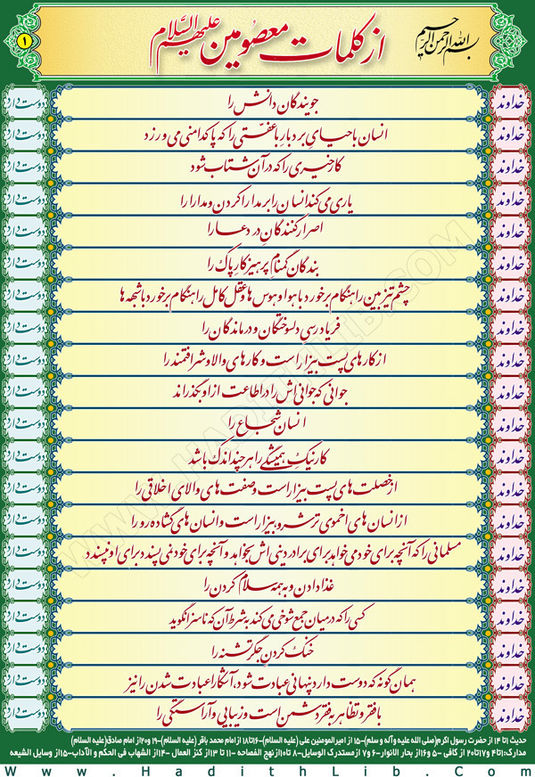 بسم الله الرحمن الرحیم
از کلمات معصومین علیهم السلام
۱
خداوند جویندگان دانش را دوست دارد
خداوند انسان با حیای بردبار با عفتی را که پاکدامنی می ورزد دوست دارد
خداوند کار خیری را که در آن شتاب شود دوست دارد
خداوند یاری می کند انسان را بر مدارا کردن و مدارا را دوست دارد
خداوند اصرار کنندگان در دعا را دوست دارد
خداوند بندگان گمنام پرهیزکار پاک را دوست دارد
خداوند چشم تیزبین را هنگام برخورد با هوا و هوس ها و عقل کامل را هنگام برخورد با شبهه ها دوست دارد
خداوند فریادرسی دلسوختگان و درماندگان را دوست دارد
خداوند از کارهای پست بیزار است و کارهای والا و شرافتمند را دوست دارد
خداوند جوانی که جوانی اش را در اطاعت از او بگذراند دوست دارد
خداوند انسان شجاع را دوست دارد
خداوند کار نیک همیشگی را هر چند اندک باشد دوست دارد
خداوند از خصلت های پست بیزار است و صفت های والای اخلاقی را دوست دارد
خداوند از انسان های اخموی ترشرو بیزار است و انسان های گشاده رو را دوست دارد
خداوند مسلمانی را که آنچه برای خود می خواهد برای برادر دینی اش بخواهد و آنچه برای خود نمی پسندد برای او نپسندد دوست دارد
خداوند غذا دادن و به همه سلام کردن را دوست دارد
خداوند کسی را که در میان جمع شوخی می کند به شرط آن که ناسزا نگوید دوست دارد
خداوند خنک کردن جگر تشنه را دوست دارد
خداوند همان گونه که دوست دارد پنهانی عبادت شود، آشکارا عبادت شدن را نیز دوست دارد
خداوند با فقر و تظاهر به فقر دشمن است و زیبایی و آراستگی را دوست دارد
حدیث ۱تا ۱۴ از حضرت رسول اکرم(صلی الله علیه و آله و سلم)-۱۵ از امیرالمومنین علی (علیه السلام)-۱۶تا۱۸ از امام محمد باقر (علیه السلام)-۱۹ و۲۰از امام صادق(علیه السلام)
مدارک:۱تا۴ و۱۷تا۲۰ از کافی -۵ و۱۶از بحار الانوار-۶ و۷ ازمستدرک الوسایل-۸ تا۱۰ازنهج الفصاحه-۱۱ تا ۱۳از کنز العمال -۱۴از الشهاب فی الحکم و الآداب-۱۵از وسایل الشیعه
www.HadithLib.com
WWW.HADITHLIB.COM